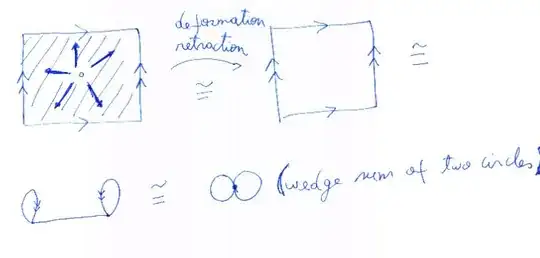 deformation
retraction
≅
≅
≅
(wedge sum of two circles)